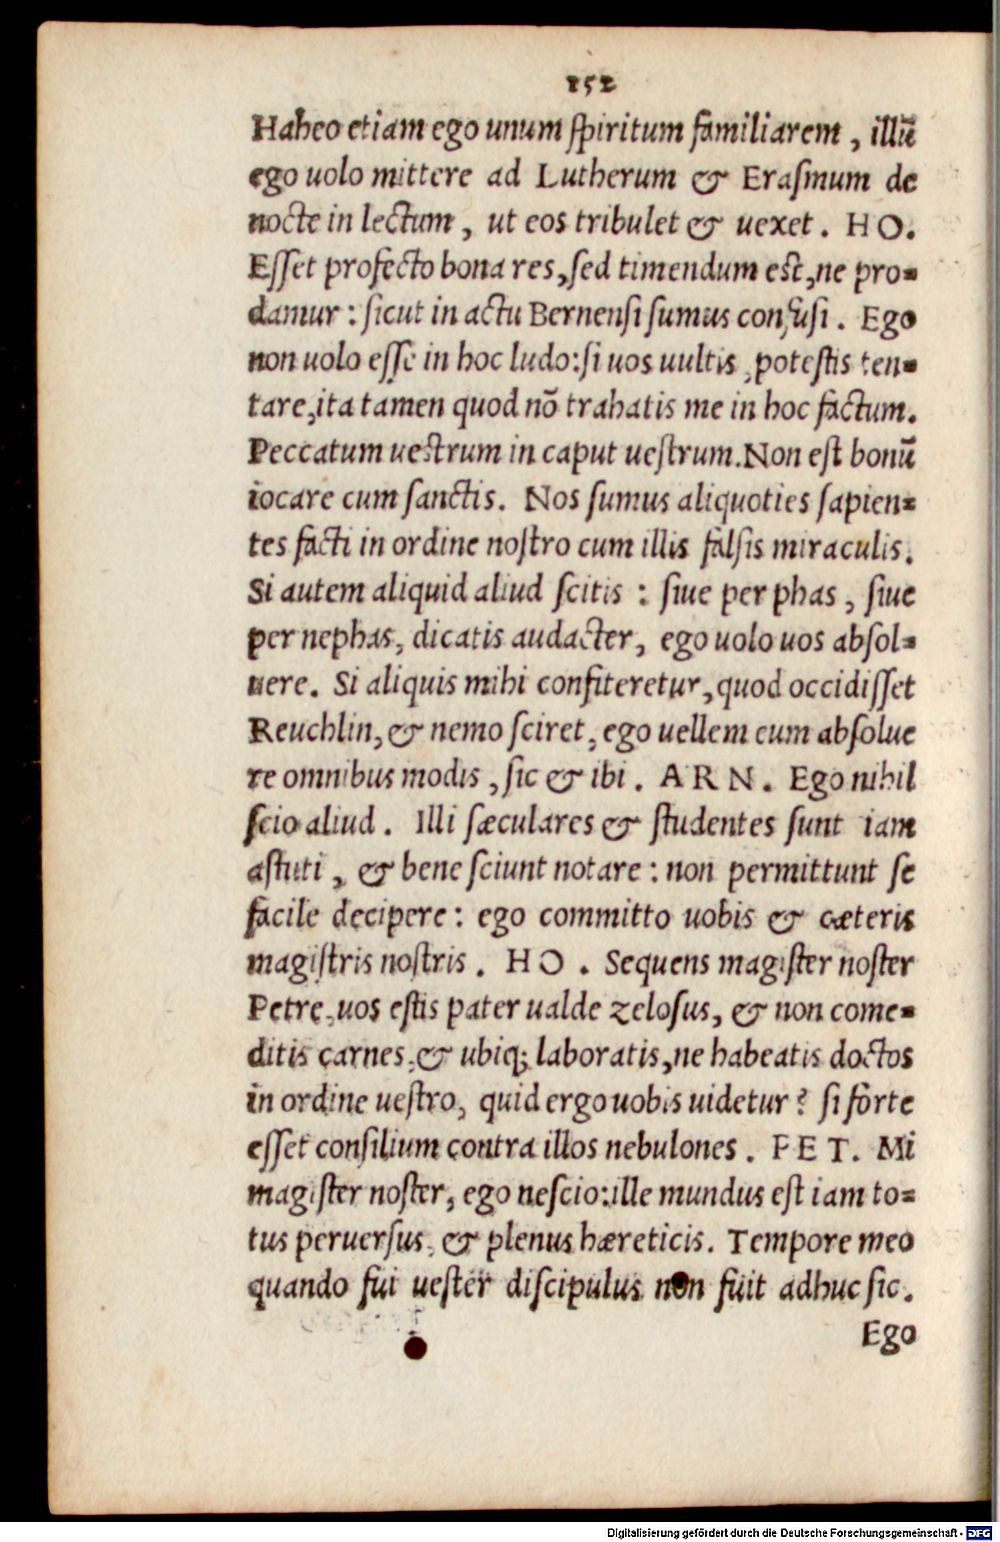 152
Habeo etiam ego unum spiritum familiarem, illū
ego uolo mittere ad Lutherum & Erasmum de
nocte in lectum, ut eos tribulet & uexet. HO.
Esset profecto bona res, sed timendum est, ne pro-
damur: sicut in actu Bernensi sumus confusi. Ego
non uolo esse in hoc ludo: si uos uultis, potestis ten-
tare, ita tamen quod nō trahatis me in hoc factum.
Peccatum uestrum in caput uestrum. Non est bonū
iocare cum sanctis. Nos sumus aliquoties sapien-
tes facti in ordine nostro cum illis falsis miraculis.
Si autem aliquid aliud scitis: siue per phas, siue
per nephas, dicatis audacter, ego uolo uos absol-
uere. Si aliquis mihi confiteretur, quod occidisset
Reuchlin, & nemo sciret, ego uellem eum absolue
re omnibus modis, sic & ibi. ARN. Ego nihil
scio aliud. Illi sæculares & studentes sunt iam
astuti, & bene sciunt notare: non permittunt se
facile decipere: ego committo uobis & cæteris
magistris nostris. HO. Sequens magister noster
Petre, uos estis pater ualde zelosus, & non come-
ditis carnes, & ubiq; laboratis, ne habeatis doctos
in ordine uestro, quid ergo uobis uidetur? si forte
esset consilium contra illos nebulones. PET. Mi
magister noster, ego nescio: ille mundus est iam to-
tus peruersus, & plenus hæreticis. Tempore meo
quando fui uester discipulus non fuit adhuc sic.
Ego
Digitalisierung gefördert durch die Deutsche Forschungsgemeinschaft - DFG